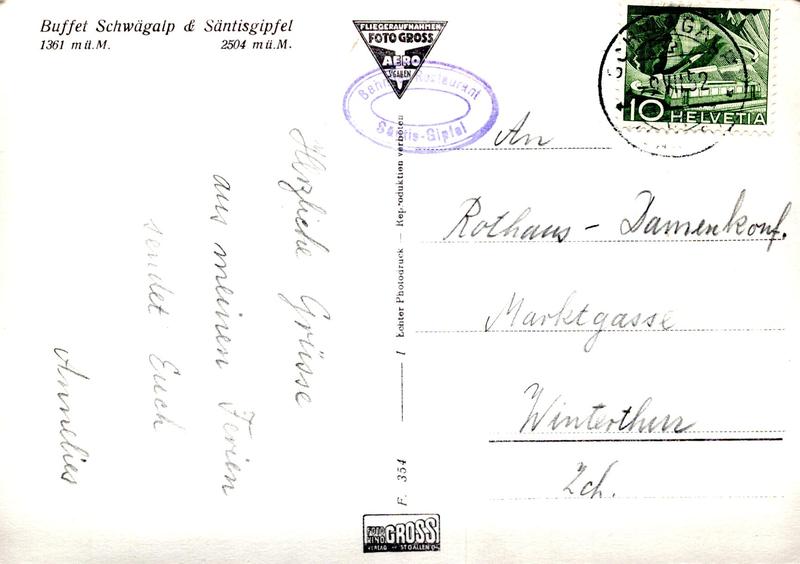 Buffet Schwägalp & Säntisgipfel
1361 mü.M. 2504 mü.M.
FLIEGERAUFNAHMEN
FOTO GROSS
AERO
ST GALLEN
Restaurant
Säntis-Gipfel
10 HELVETIA
Herzliche Grüsse
aus meinen Ferien
sendet Euch
Annelies
F. 354 I Echter Photodruck — Reproduktion verboten
An
Rothaus - Damenkonf.
Marktgasse
Winterthur
Zch.
GROSS
VERLAG ST GALLEN